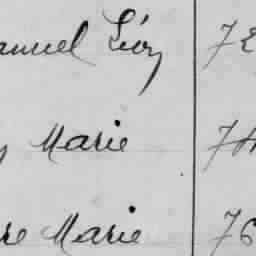 anuel Léon 72
y Marie 74
re Marie 76